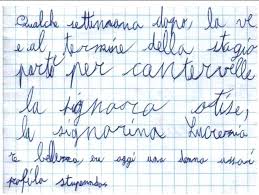 Qualche settimana dopo, la ve
e al termine della stagio
partì per cantervelle
la signora otise,
la signorina Lucrezia
e bellezza eu oggi una donna assai
profila stupenda